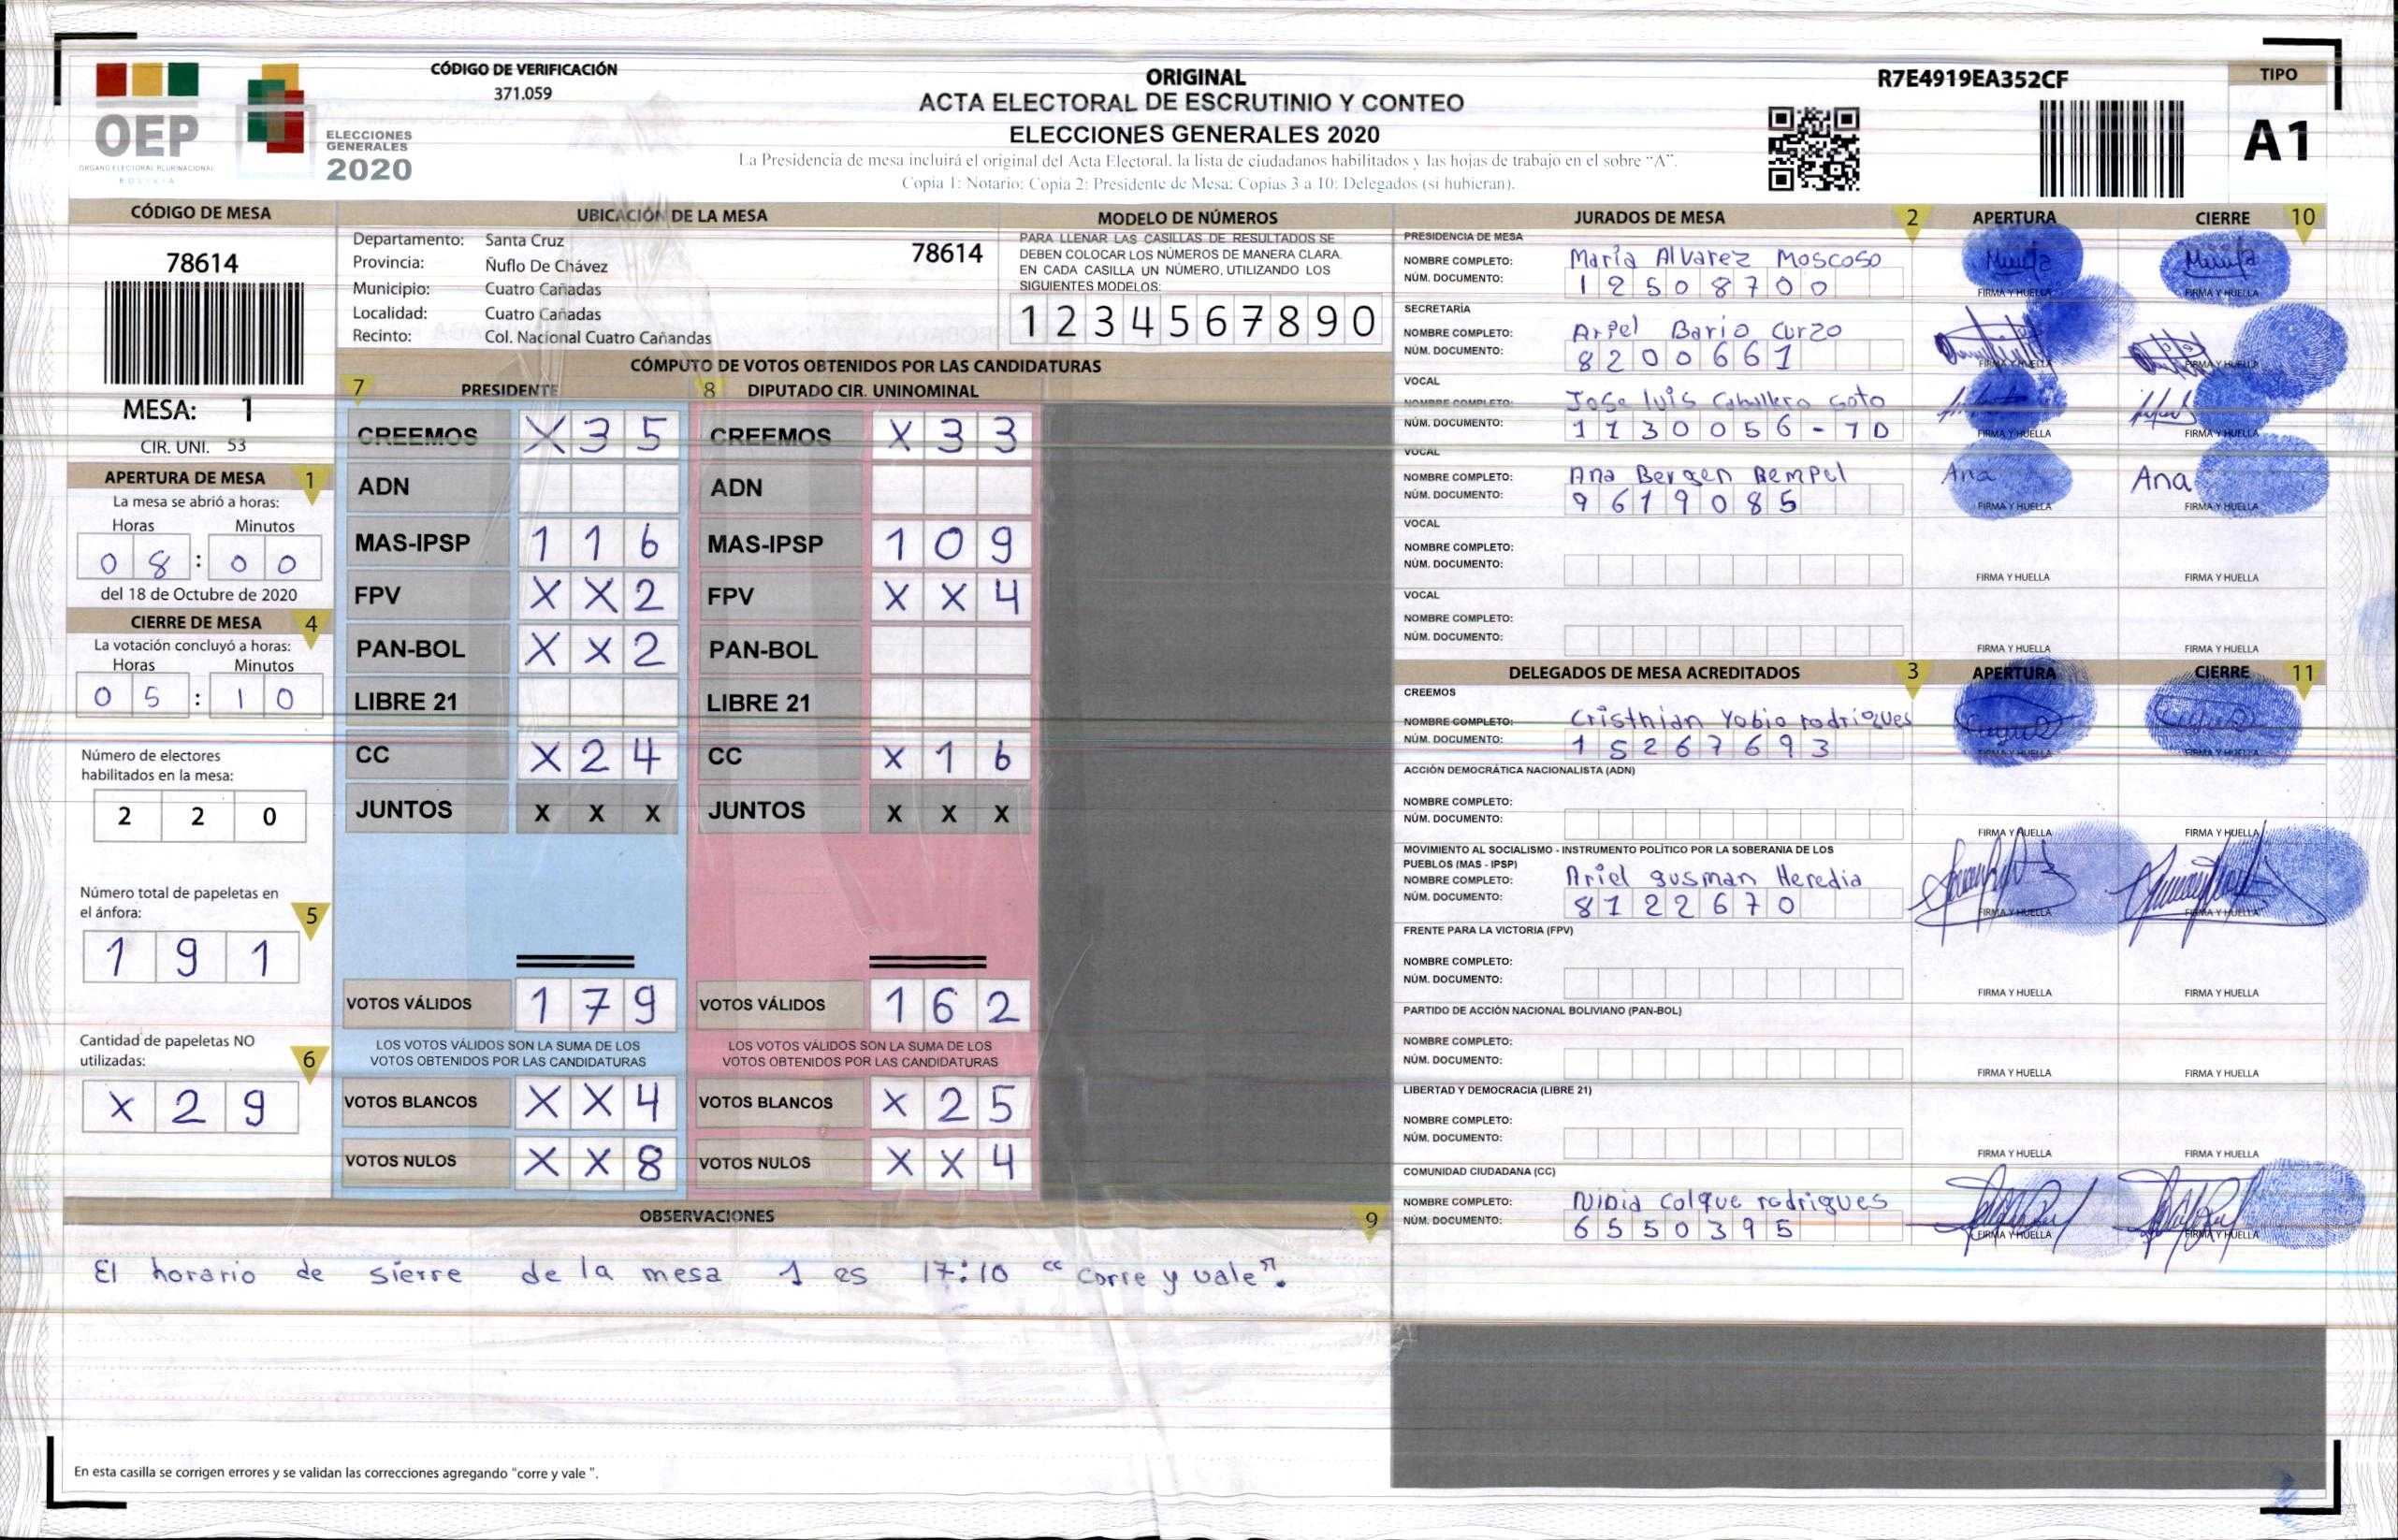 OEP
ÓRGANO ELECTORAL PLURINACIONAL
BOLIVIA
ELECCIONES
GENERALES
2020
CÓDIGO DE VERIFICACIÓN
371.059
ORIGINAL
ACTA ELECTORAL DE ESCRUTINIO Y CONTEO
ELECCIONES GENERALES 2020
La Presidencia de mesa incluirá el original del Acta Electoral, la lista de ciudadanos habilitados y las hojas de trabajo en el sobre "A".
Copia 1: Notario; Copia 2: Presidente de Mesa; Copias 3 a 10: Delegados (si hubieran).
R7E4919EA352CF
TIPO
A1
CÓDIGO DE MESA
78614
MESA: 1
CIR. UNI. 53
APERTURA DE MESA 1
La mesa se abrió a horas:
Horas Minutos
0 8 : 0 0
del 18 de Octubre de 2020
CIERRE DE MESA 4
La votación concluyó a horas:
Horas Minutos
0 5 : 1 0
Número de electores
habilitados en la mesa:
2 2 0
Número total de papeletas en
el ánfora: 5
1 9 1
Cantidad de papeletas NO
utilizadas: 6
X 2 9
UBICACIÓN DE LA MESA
Departamento: Santa Cruz 78614
Provincia: Ñuflo De Chávez
Municipio: Cuatro Cañadas
Localidad: Cuatro Cañadas
Recinto: Col. Nacional Cuatro Cañandas
MODELO DE NÚMEROS
PARA LLENAR LAS CASILLAS DE RESULTADOS SE
DEBEN COLOCAR LOS NÚMEROS DE MANERA CLARA.
EN CADA CASILLA UN NÚMERO, UTILIZANDO LOS
SIGUIENTES MODELOS:
1 2 3 4 5 6 7 8 9 0
CÓMPUTO DE VOTOS OBTENIDOS POR LAS CANDIDATURAS
7 PRESIDENTE 8 DIPUTADO CIR. UNINOMINAL
CREEMOS X 3 5 CREEMOS X 3 3
ADN ADN
MAS-IPSP 1 1 6 MAS-IPSP 1 0 9
FPV X X 2 FPV X X 4
PAN-BOL X X 2 PAN-BOL
LIBRE 21 LIBRE 21
CC X 2 4 CC X 1 6
JUNTOS X X X JUNTOS X X X
VOTOS VÁLIDOS 1 7 9 VOTOS VÁLIDOS 1 6 2
LOS VOTOS VÁLIDOS SON LA SUMA DE LOS LOS VOTOS VÁLIDOS SON LA SUMA DE LOS
VOTOS OBTENIDOS POR LAS CANDIDATURAS VOTOS OBTENIDOS POR LAS CANDIDATURAS
VOTOS BLANCOS X X 4 VOTOS BLANCOS X 2 5
VOTOS NULOS X X 8 VOTOS NULOS X X 4
OBSERVACIONES 9
El horario de sierre de la mesa 1 es 17:10 "corre y vale".
En esta casilla se corrigen errores y se validan las correcciones agregando "corre y vale ".
JURADOS DE MESA 2 APERTURA CIERRE 10
PRESIDENCIA DE MESA
NOMBRE COMPLETO: María Alvarez Moscoso
NÚM. DOCUMENTO: 1 2 5 0 8 7 0 0
FIRMA Y HUELLA FIRMA Y HUELLA
SECRETARÍA
NOMBRE COMPLETO: Bario Curzo
NÚM. DOCUMENTO: 8 2 0 0 6 6 1
FIRMA Y HUELLA FIRMA Y HUELLA
VOCAL
NOMBRE COMPLETO: Jose luis Caballero Soto
NÚM. DOCUMENTO: 1 1 3 0 0 5 6 - 1 D
FIRMA Y HUELLA FIRMA Y HUELLA
VOCAL
NOMBRE COMPLETO: Ana Bergen Rempel Ana Ana
NÚM. DOCUMENTO: 9 6 1 9 0 8 5
FIRMA Y HUELLA FIRMA Y HUELLA
VOCAL
NOMBRE COMPLETO:
NÚM. DOCUMENTO:
FIRMA Y HUELLA FIRMA Y HUELLA
VOCAL
NOMBRE COMPLETO:
NÚM. DOCUMENTO:
FIRMA Y HUELLA FIRMA Y HUELLA
DELEGADOS DE MESA ACREDITADOS 3 APERTURA CIERRE 11
CREEMOS
NOMBRE COMPLETO: Cristhian Yobio rodrigues
NÚM. DOCUMENTO: 1 5 2 6 7 6 9 3
FIRMA Y HUELLA FIRMA Y HUELLA
ACCIÓN DEMOCRÁTICA NACIONALISTA (ADN)
NOMBRE COMPLETO:
NÚM. DOCUMENTO:
FIRMA Y HUELLA FIRMA Y HUELLA
MOVIMIENTO AL SOCIALISMO - INSTRUMENTO POLÍTICO POR LA SOBERANIA DE LOS
PUEBLOS (MAS - IPSP)
NOMBRE COMPLETO: Ariel gusman Heredia
NÚM. DOCUMENTO: 8 1 2 2 6 7 0
FIRMA Y HUELLA FIRMA Y HUELLA
FRENTE PARA LA VICTORIA (FPV)
NOMBRE COMPLETO:
NÚM. DOCUMENTO:
FIRMA Y HUELLA FIRMA Y HUELLA
PARTIDO DE ACCIÓN NACIONAL BOLIVIANO (PAN-BOL)
NOMBRE COMPLETO:
NÚM. DOCUMENTO:
FIRMA Y HUELLA FIRMA Y HUELLA
LIBERTAD Y DEMOCRACIA (LIBRE 21)
NOMBRE COMPLETO:
NÚM. DOCUMENTO:
FIRMA Y HUELLA FIRMA Y HUELLA
COMUNIDAD CIUDADANA (CC)
NOMBRE COMPLETO: Colque rodrigues
NÚM. DOCUMENTO: 6 5 5 0 3 9 5
FIRMA Y HUELLA FIRMA Y HUELLA